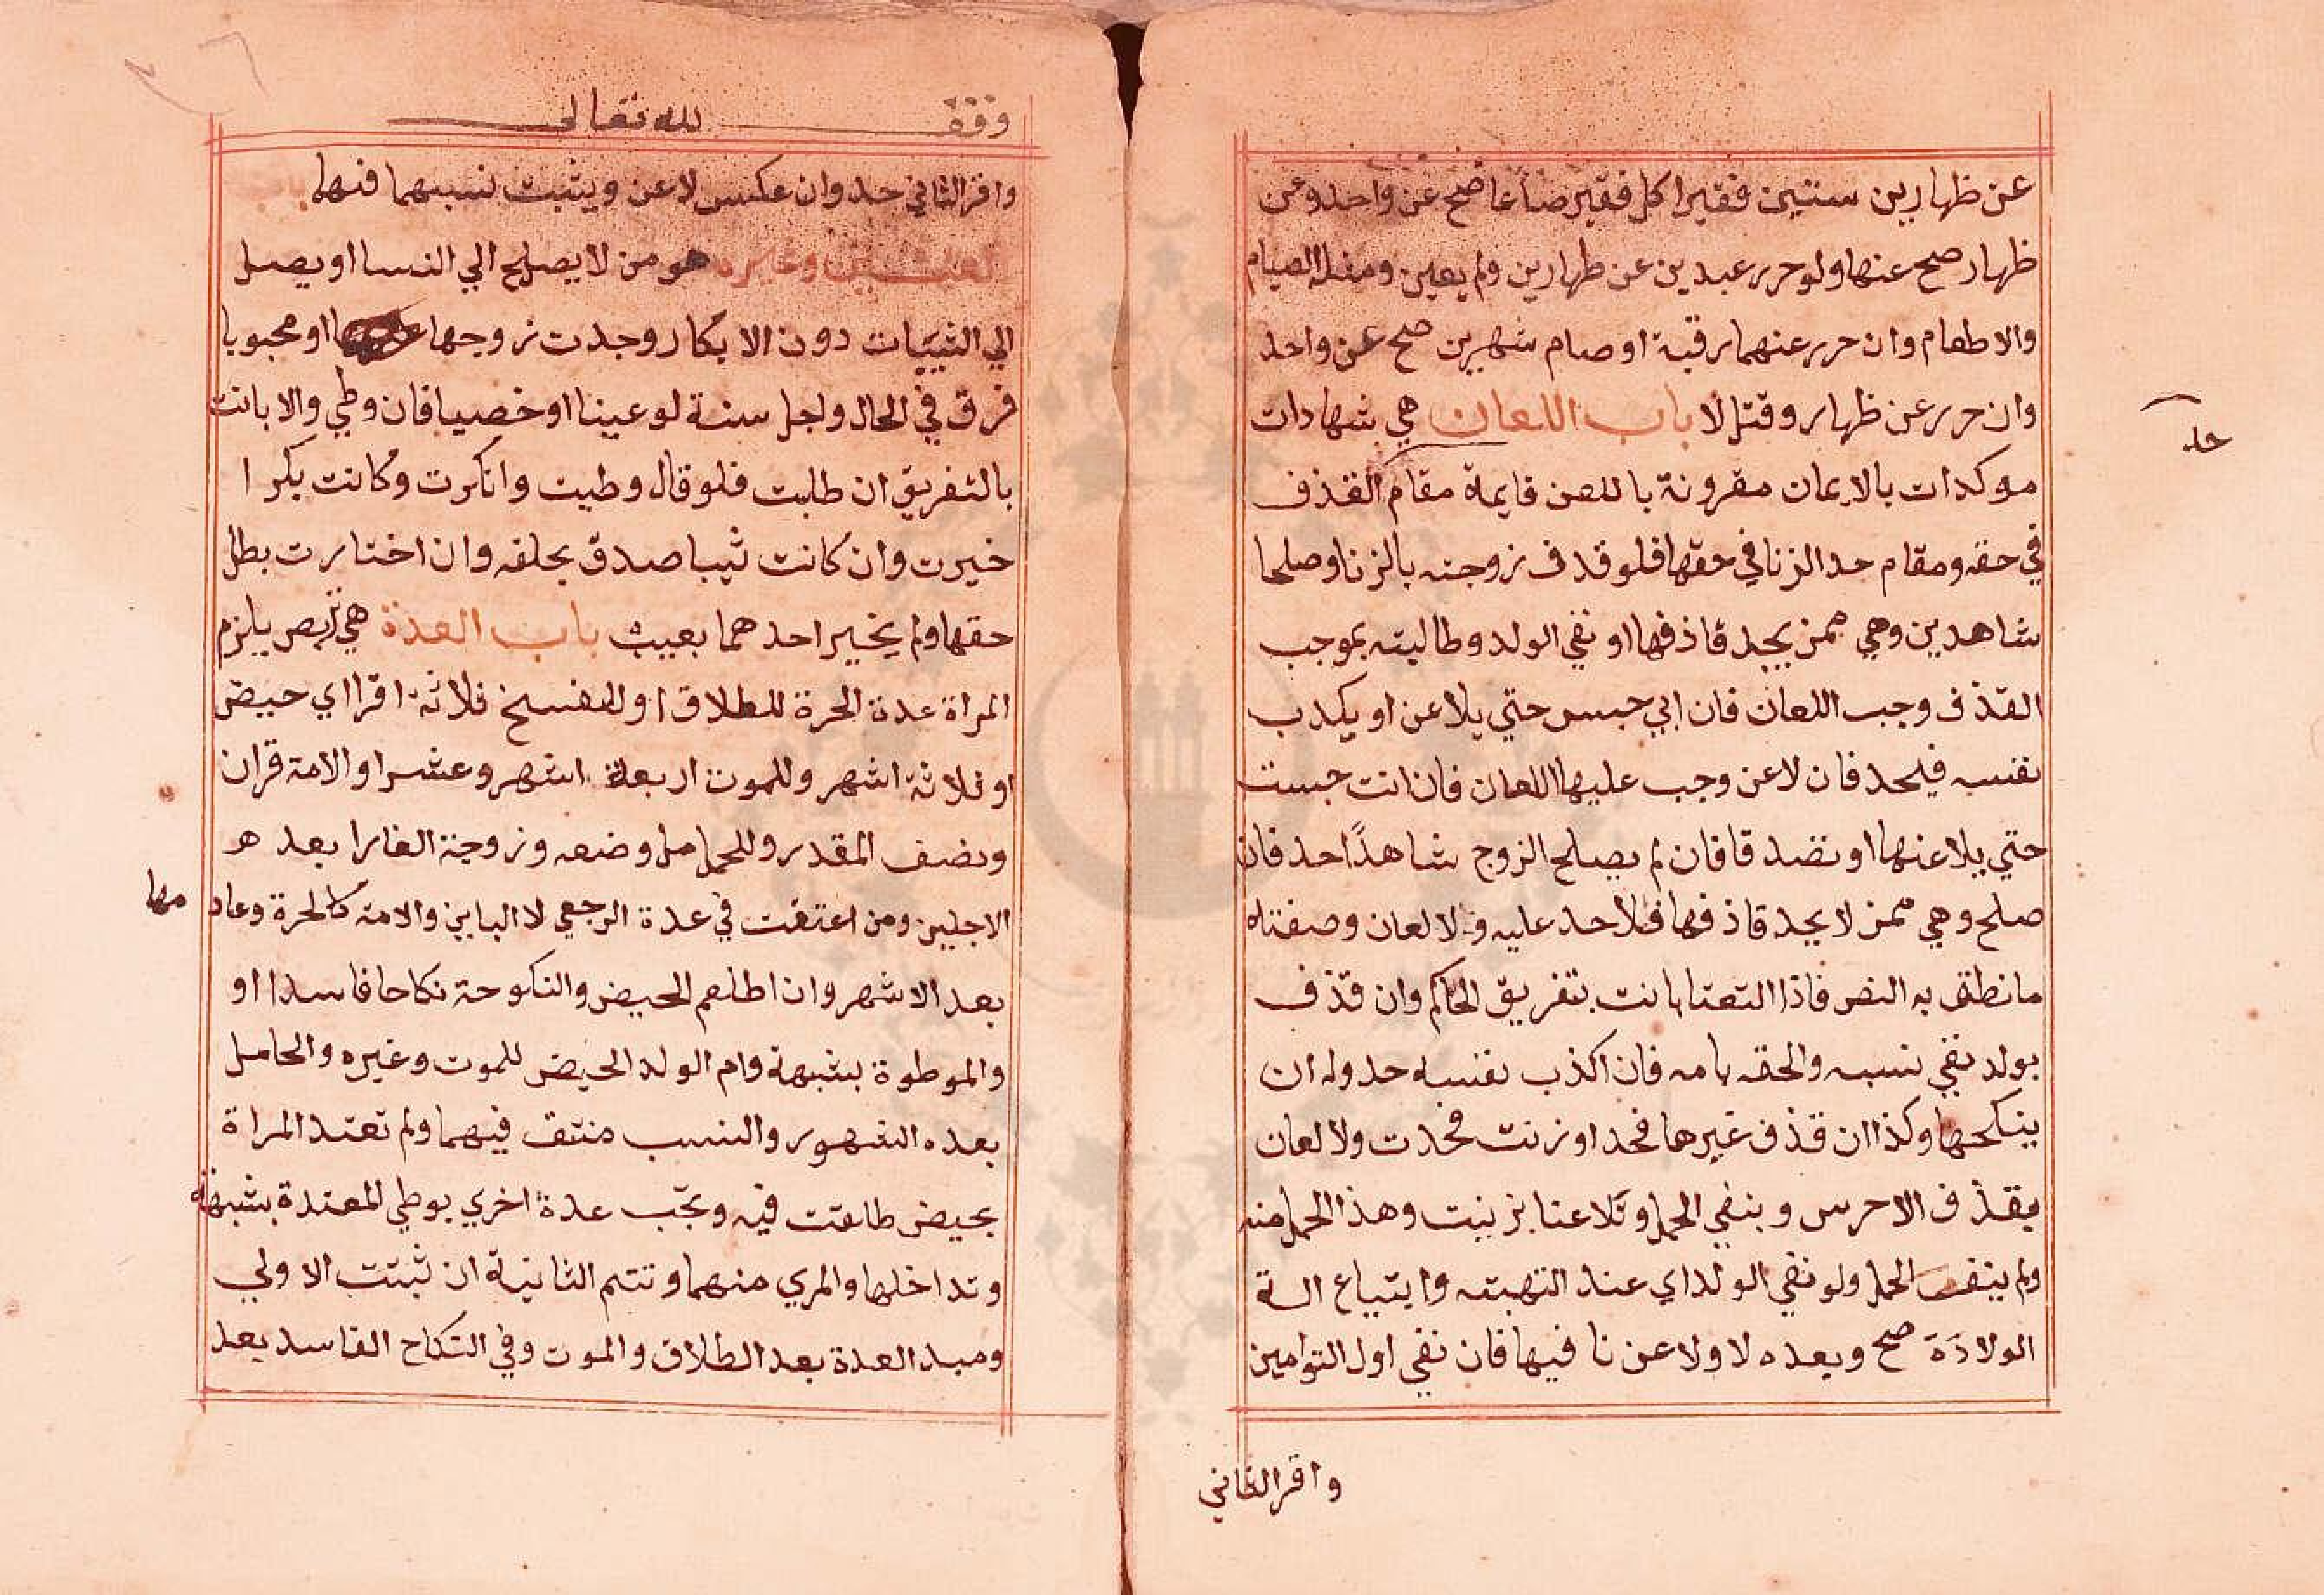 عن ظهارين ستين فقيرا كل فقير صاعا صح عن واحد وعن
ظهار صح عنها ولو حرر عبدين عن ظهارين ولم يعين ومثله الصيام
والاطعام وان حرر عنهما رقبة او صام شهرين صح عن واحد
وان حرر عن ظهار وقتل لا باب اللعان هي شهادات
موكدات بالايمان مقرونة باللعن قايمة مقام القذف
حد
في حقه ومقام حد الزنا في حقها فلو قذف زوجته بالزنا وصلحا
شاهدين وهي ممن يحد قاذفها او نفي الولد وطالبته بموجب
القذف وجب اللعان فان ابي حبس حتي يلاعن او يكذب
نفسه فيحد فان لاعن وجب عليها اللعان فان ابت حبست
حتي يلاعنها او تصدقا فان لم يصلح الزوج شاهدًا حد فان
صلح وهي ممن لا يحد قاذفها فلا حد عليه ولا لعان وصفته
ما نطق به النص فاذا التعنا بانت بتفريق الحاكم وان قذف
بولد نفي نسبه والحقه بامه فان اكذب نفسه حد وله ان
ينكحها وكذا ان قذف غيرها فحد او زنت فحدت ولا لعان
بقذف الاخرس وبنفي الحمل وتلاعنا بزنيت وهذا الحمل منه
ولم ينف الحمل ولو نفي الولد اي عند التهنية وابتياع الة
الولادة صح وبعده لا ولاعن نا فيها فان نفي اول التوامين
واقر الثاني
وقف لله تعالى
واقر الثاني حد وان عكس لاعن ويثبت نسبهما فنهما باب
العنين وغيره هو من لا يصلح الي النسا او يصل
الي الثيبات دون الابكار وجدت زوجها او مجبوبا
فرق في الحال واجل سنة لو عينا او خصيا فان وطي والا بانت
بالتفريق ان طلبت فلو قال وطيت وانكرت وكانت بكرا
خيرت وان كانت ثيبا صدق بحلفه وان اختارت بطل
حقها ولم يخير احدهما بعيب باب العدة هي تربص يلزم
المراة عدة الحرة للطلاق او للفسخ ثلاثة اقرا اي حيض
او ثلاثة اشهر وللموت اربعة اشهر وعشرا والامة قران
ونصف المقدر وللحامل وضعه وزوجة الفار ابعد هر
الاجلين ومن اعتقت في عدة الرجعي لا الباين والامة كالحرة وعاد
مها
بعد الاشهر وان اطلعم الحيض والنكوحة نكاحا فاسدا او
والموطوة بشبهة وام الولد الحيض للموت وغيره والحامل
بعده الشهور والنسب منتف فيهما ولم تعتد المراة
بحيض طلقت فيه وتجب عدة اخري بوطي المعتدة بشبهة
وتداخلها والمري منهما وتتم الثانية ان ثبتت الاولي
ومبد العدة بعد الطلاق والموت وفي النكاح الفاسد بعد